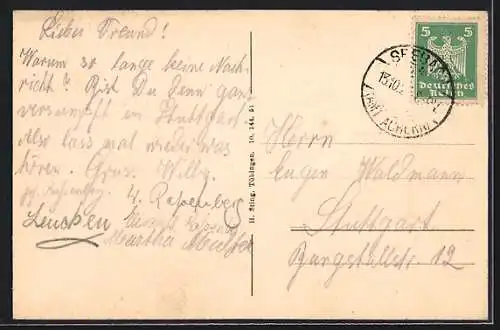 Lieber Freund!
Warum so lange keine Nach-
richt? Bist Du denn ganz
versumpft in Stuttgart.
Also lass mal wieder was
hören. Gruss. Willy.
4. Rapenberg
Leuschen
Martha
H. Sting, Tübingen. 10. 144. 51
5 5
Deutsches
Reich
SEEBACH
13.10.
(AMT ACHERN)
Herrn
Eugen Waldmann
Stuttgart
Burgstallstr. 12